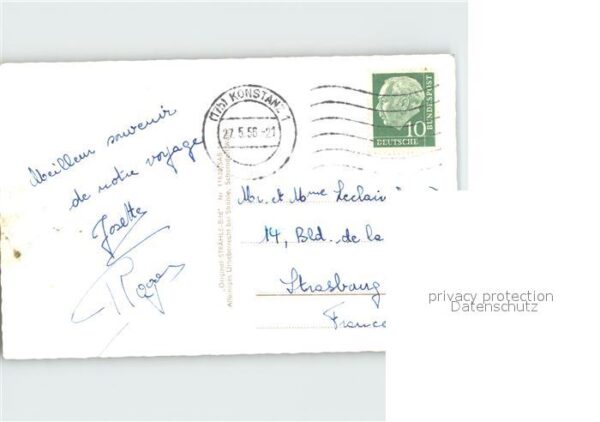 Meilleur souvenir
de notre voyage
Josette
Roger
(17b) KONSTANZ 1
27.5.56-21
10
DEUTSCHE
BUNDESPOST
Original STRÄHLE-Bild Nr.
Alleiniges Urheberrecht bei Strähle, Schorndorf
Mr. et Mme Leclair
14, Bld. de la
Strasbourg
France
privacy protection
Datenschutz